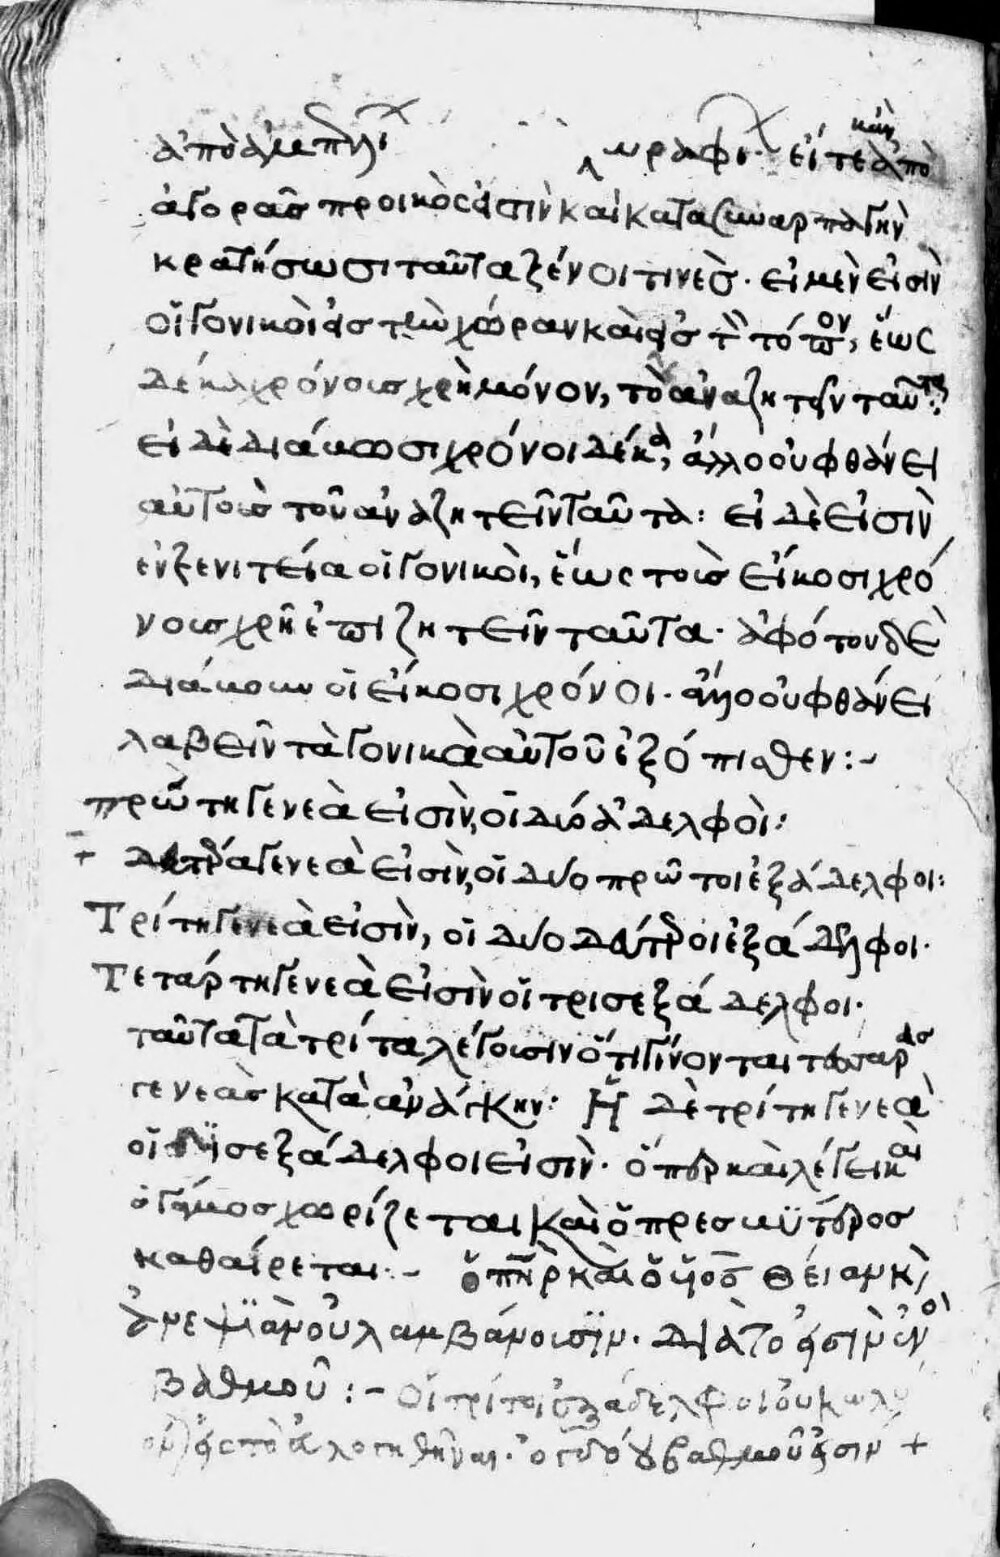 ἀπὸ ἀμπέλι χωράφι· εἴτε κἂν ἀπὸ
ἀγορᾶσ προικὸς εἰσὶν καὶ κατα ἁρπαγὴν
κρατήσωσι ταῦτα ξένοι τινὲσ· εἰ μὲν εἰσὶν
οἱ γονικοὶ εἰσ τὴν χώραν καὶ εἰσ τὸν τόπον, ἕως
δέκα χρόνουσ χρὴ μόνον, τοῦ ἀναζητῆν ταῦτα:
εἰ δὲ διάκωσι χρόνοι δέκα, ἄλλο οὐ φθάνει
αὐτοὺσ τοῦ ἀναζητεῖν ταῦτα: εἰ δὲ εἰσὶν
ἐν ξενιτεία οἱ γονικοὶ, ἕως τοὺσ εἴκοσι χρό
νουσ χρῆ ἐπιζητεῖν ταῦτα· ἀφότου δὲ
διάκου οἱ εἴκοσι χρόνοι· ἄλλο οὐ φθάνει
λαβεῖν τὰ γονικὰ αὐτοῦ ἐξόπισθεν:~
πρώτη γενεὰ εἰσὶν, οἱ δύο ἀδελφοὶ:
+ Δευτέρα γενεὰ εἰσὶν, οἱ δύο πρῶτοι ἐξάδελφοι:
Τρίτη γενεὰ εἰσὶν, οἱ δύο δεύτεροι ἐξάδελφοι·
Τετάρτη γενεὰ εἰσὶν οἱ τρισεξάδελφοι·
ταῦτα τὰ τρίτα λέγουσιν ὅτι γίνονται τέσσαρασ
γενεὰσ κατὰ ἀνάγκην: Ἡ δὲ τρίτη γενεὰ
οἱ δισεξάδελφοι εἰσὶν· ὅπερ καὶ λέγει καὶ
ὁ γάμοσ χωρίζεται καὶ ὁ πρεσβύτεροσ
καθαίρεται·~ ὁ πατὴρ καὶ ὁ υἱὸσ θείαν καὶ
ἀνεψϊὰν οὐ λαμβάνουσϊν· διὰ τὸ εἰσὶν
βαθμοῦ:~ Οἱ τρίτοι ἐξάδελφοι οὐ κωλύ
εἰς τὸ εὐλογηθῆναι· ὀγδόου βαθμοῦ εἰσιν +